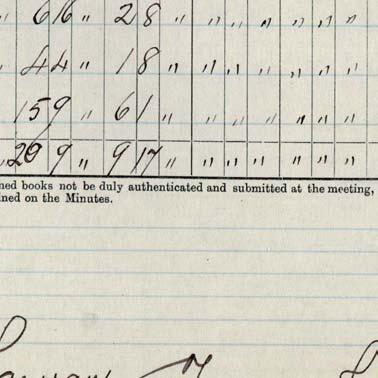 66 " 28 " " " " " " "
44 " 18 " " " " " " "
159 " 61 " " " " " " "
299 " 917 " " " " " " "
ned books not be duly authenticated and submitted at the meeting,
ined on the Minutes.